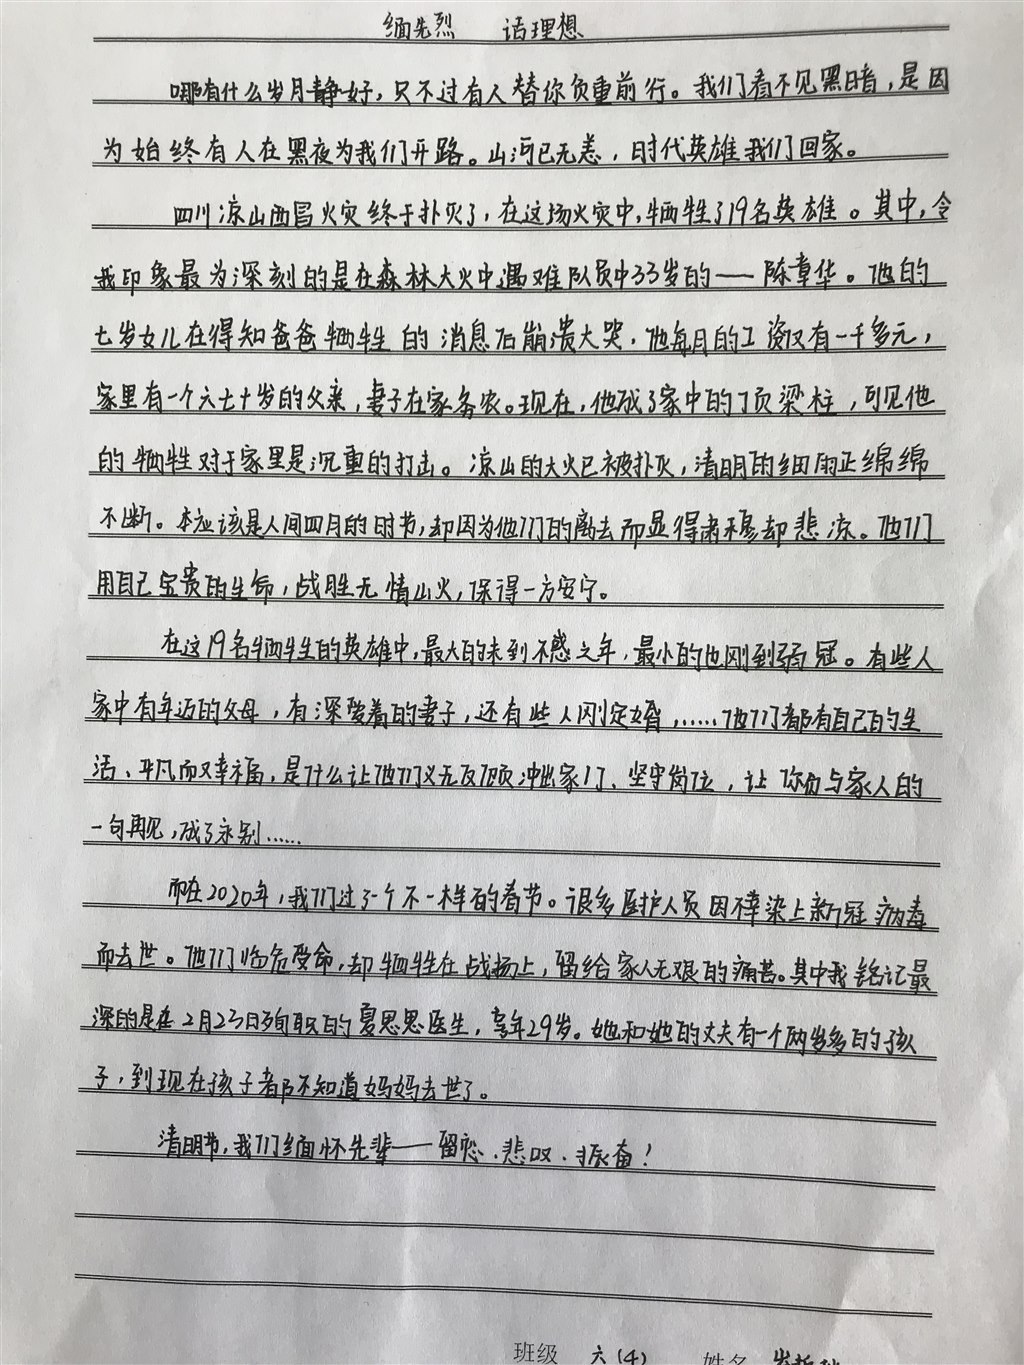 缅先烈 话理想
哪有什么岁月静好，只不过有人替你负重前行。我们看不见黑暗，是因
为始终有人在黑夜为我们开路。山河已无恙，时代英雄我们回家。
四川凉山西昌火灾终于扑灭了，在这场火灾中，牺牲了19名英雄。其中，令
我印象最为深刻的是在森林大火中遇难队员中33岁的——陈章华。他的
七岁女儿在得知爸爸牺牲的消息后崩溃大哭，他每月的工资仅有一千多元，
家里有一个六七十岁的父亲，妻子在家务农。现在，他成了家中的顶梁柱，可见他
的牺牲对于家里是沉重的打击。凉山的大火已被扑灭，清明的细雨正绵绵
不断。本应该是人间四月的时节，却因为他们的离去而显得肃穆却悲凉。他们
用自己宝贵的生命，战胜无情山火，保得一方安宁。
在这19名牺牲的英雄中，最大的未到不惑之年，最小的也刚到弱冠。有些人
家中有年迈的父母，有深爱着的妻子，还有些人刚定婚，……他们都有自己的生
活、平凡而又幸福，是什么让他们义无反顾冲出家门、坚守岗位，让你们与家人的
一句再见，成了永别……
而在2020年，我们过了一个不一样的春节。很多医护人员因不幸染上新冠病毒
而去世。他们临危受命，却牺牲在战场上，留给家人无艰的痛苦。其中我铭记最
深的是在2月23日殉职的夏思思医生，享年29岁。她和她的丈夫有一个两岁多的孩
子，到现在孩子都不知道妈妈去世了。
清明节，我们缅怀先辈——留恋、悲叹、振奋！
班级 六(4) 姓名